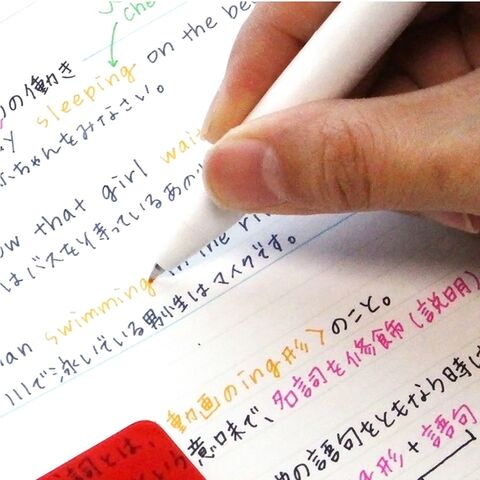 che
の働き
sleeping on the be
ちゃんをみなさい。
ow that girl wai
はバスを待っているあの
an swimming in the ri
川で泳いでいる男性はマイクです。
動画のing形〉のこと。
意味で、名詞を修飾(説明)
の語句をともなう時は
形 + 語句
詞とは、